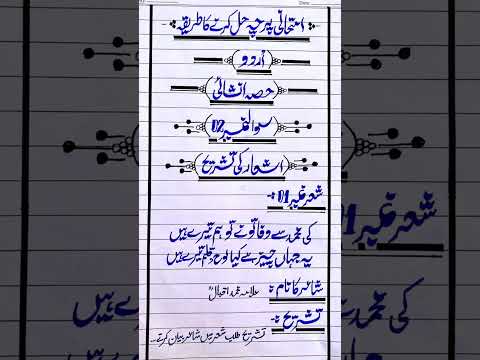 امتحانی پرچہ حل کرنے کا طریقہ
اُردو
حصہ انشائی
سوال نمبر 02
اشعار کی تشریح
شعر نمبر 01 :-
کی محمدؐ سے وفا تُو نے تو ہم تیرے ہیں
یہ جہاں چیز ہے کیا لوح و قلم تیرے ہیں
شاعر کا نام :- علامہ محمد اقبالؒ
تشریح :-
تشریح طلب شعر میں شاعر بیان کرتے...